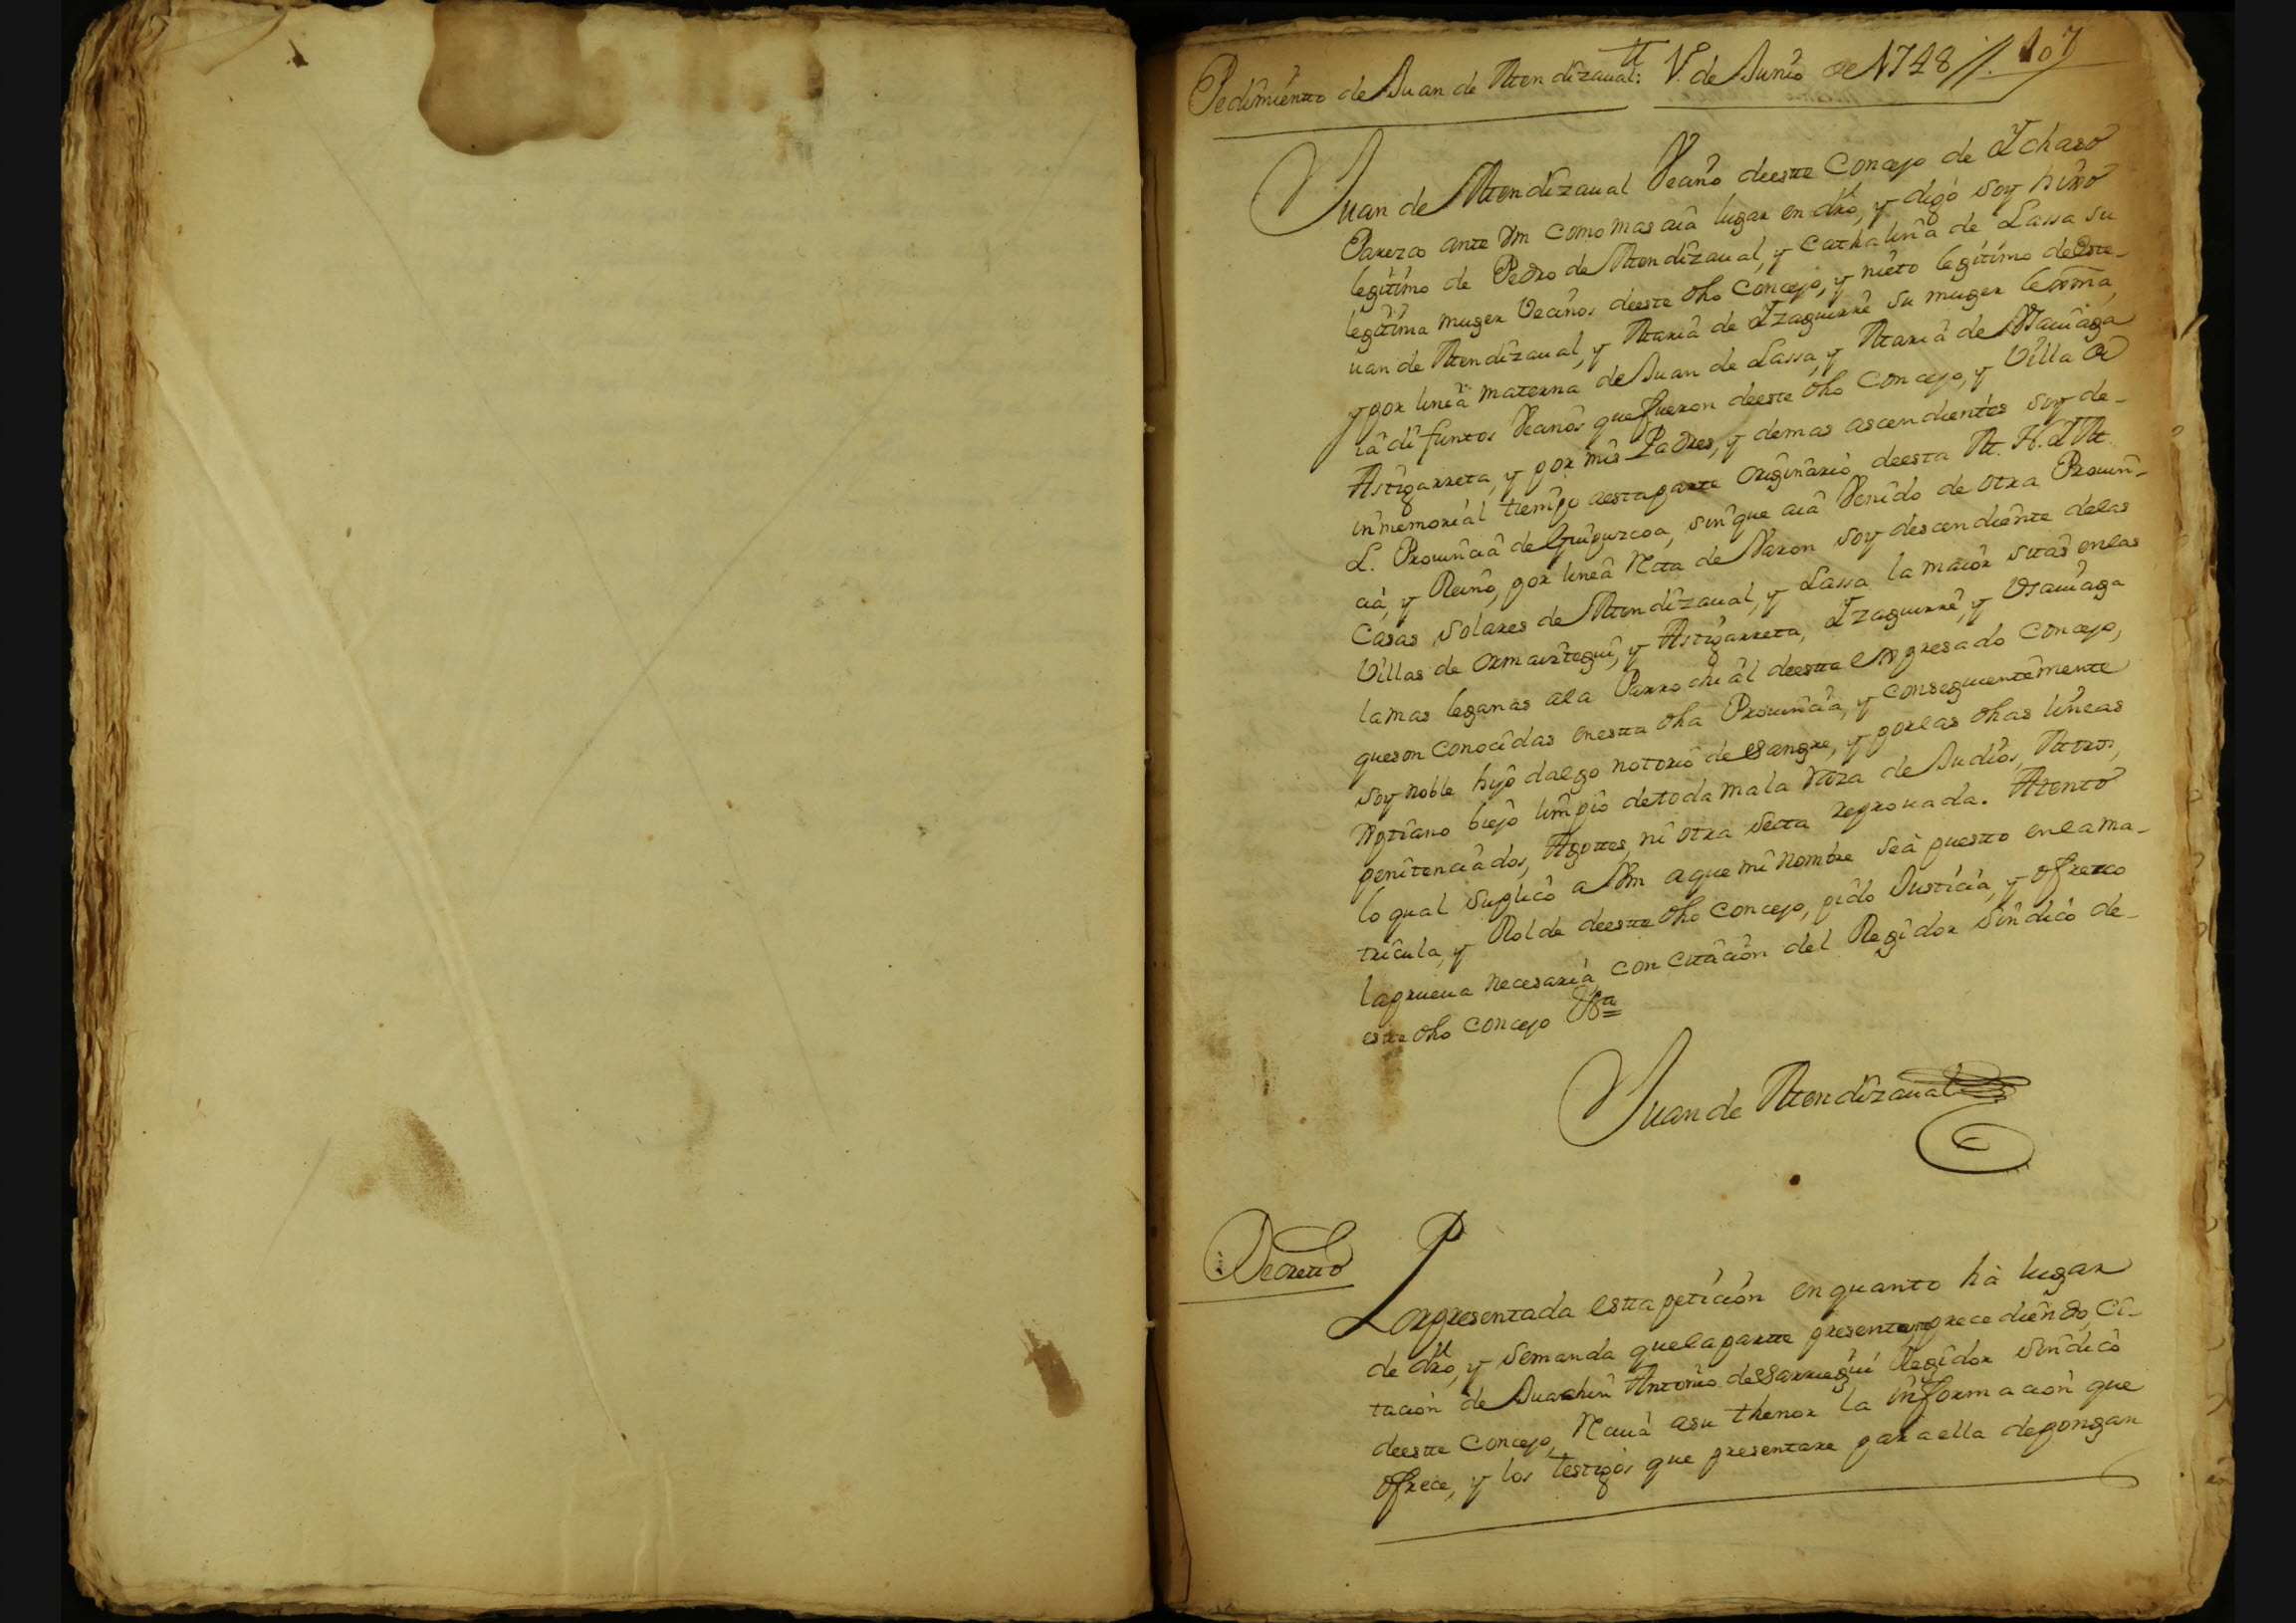 Pedimiento de Juan de Mendizaual: V. de Junio de 1748 //. 107
Juan de Mendizaual Vecino deeste Concejo de Ychaso
Parezco ante Vm como mas aia lugar en dro, y digo soy hixo
legitimo de Pedro de Mendizaual, y Cathalina de Lassa su
legitima muger Vecinos deeste dho Concejo, y nieto legitimo de Este-
uan de Mendizaual, y Maria de Yzaguirre su muger lexma,
y por linea materna de Juan de Lassa, y Maria de Vsauiaga
ia difuntos Vecinos que fueron deeste dho Concejo, y Villa de
Astigarreta, y por mis Padres, y demas ascendientes soy de-
inmemorial tiempo aestaparte Originario deesta M. N. Y M.
L. Prouincia de Guipuzcoa, sinque aia Venido de otra Prouin-
cia, y Reino, por linea Recta de Varon soy descendiente delas
Casas Solares de Mendizaual, y Lassa la maior sitas enlas
Villas de Ormaiztegui, y Astigarreta, Yzaguirre, y Vsauiaga
lamas leganas ala Parrochial deestte expresado Concejo,
queson conocidas enestta dha Prouincia, y conseguientemente
soy noble hijo dalgo notorio de Sangre, y porlas dhas lineas
Xptiano biejo limpio detoda mala Raza de Judios, Moros,
penitenciados, Agottes, ni otra Secta reprouada. Atento
lo qual Suplico a Vm aque mi nombre sea puesto enlama-
tricula, y Rolde deestte dho Concejo, pido Justicia, y ofrezco
laprueua necesaria con Citacion del Regidor Sindico de-
estte dho Concejo Vª=
Juan de Mendizaual
Decretto
Porpresentada esttapeticion enquanto hà lugar
de dro, y semanda quelapartte presentante precediendo Ci-
tacion de Juachin Antonio desarriegui Regidor Sindico
deestte Concejo, Reciua asu thenor la informacion que
ofrece, y los testigos que presentare paraella depongan